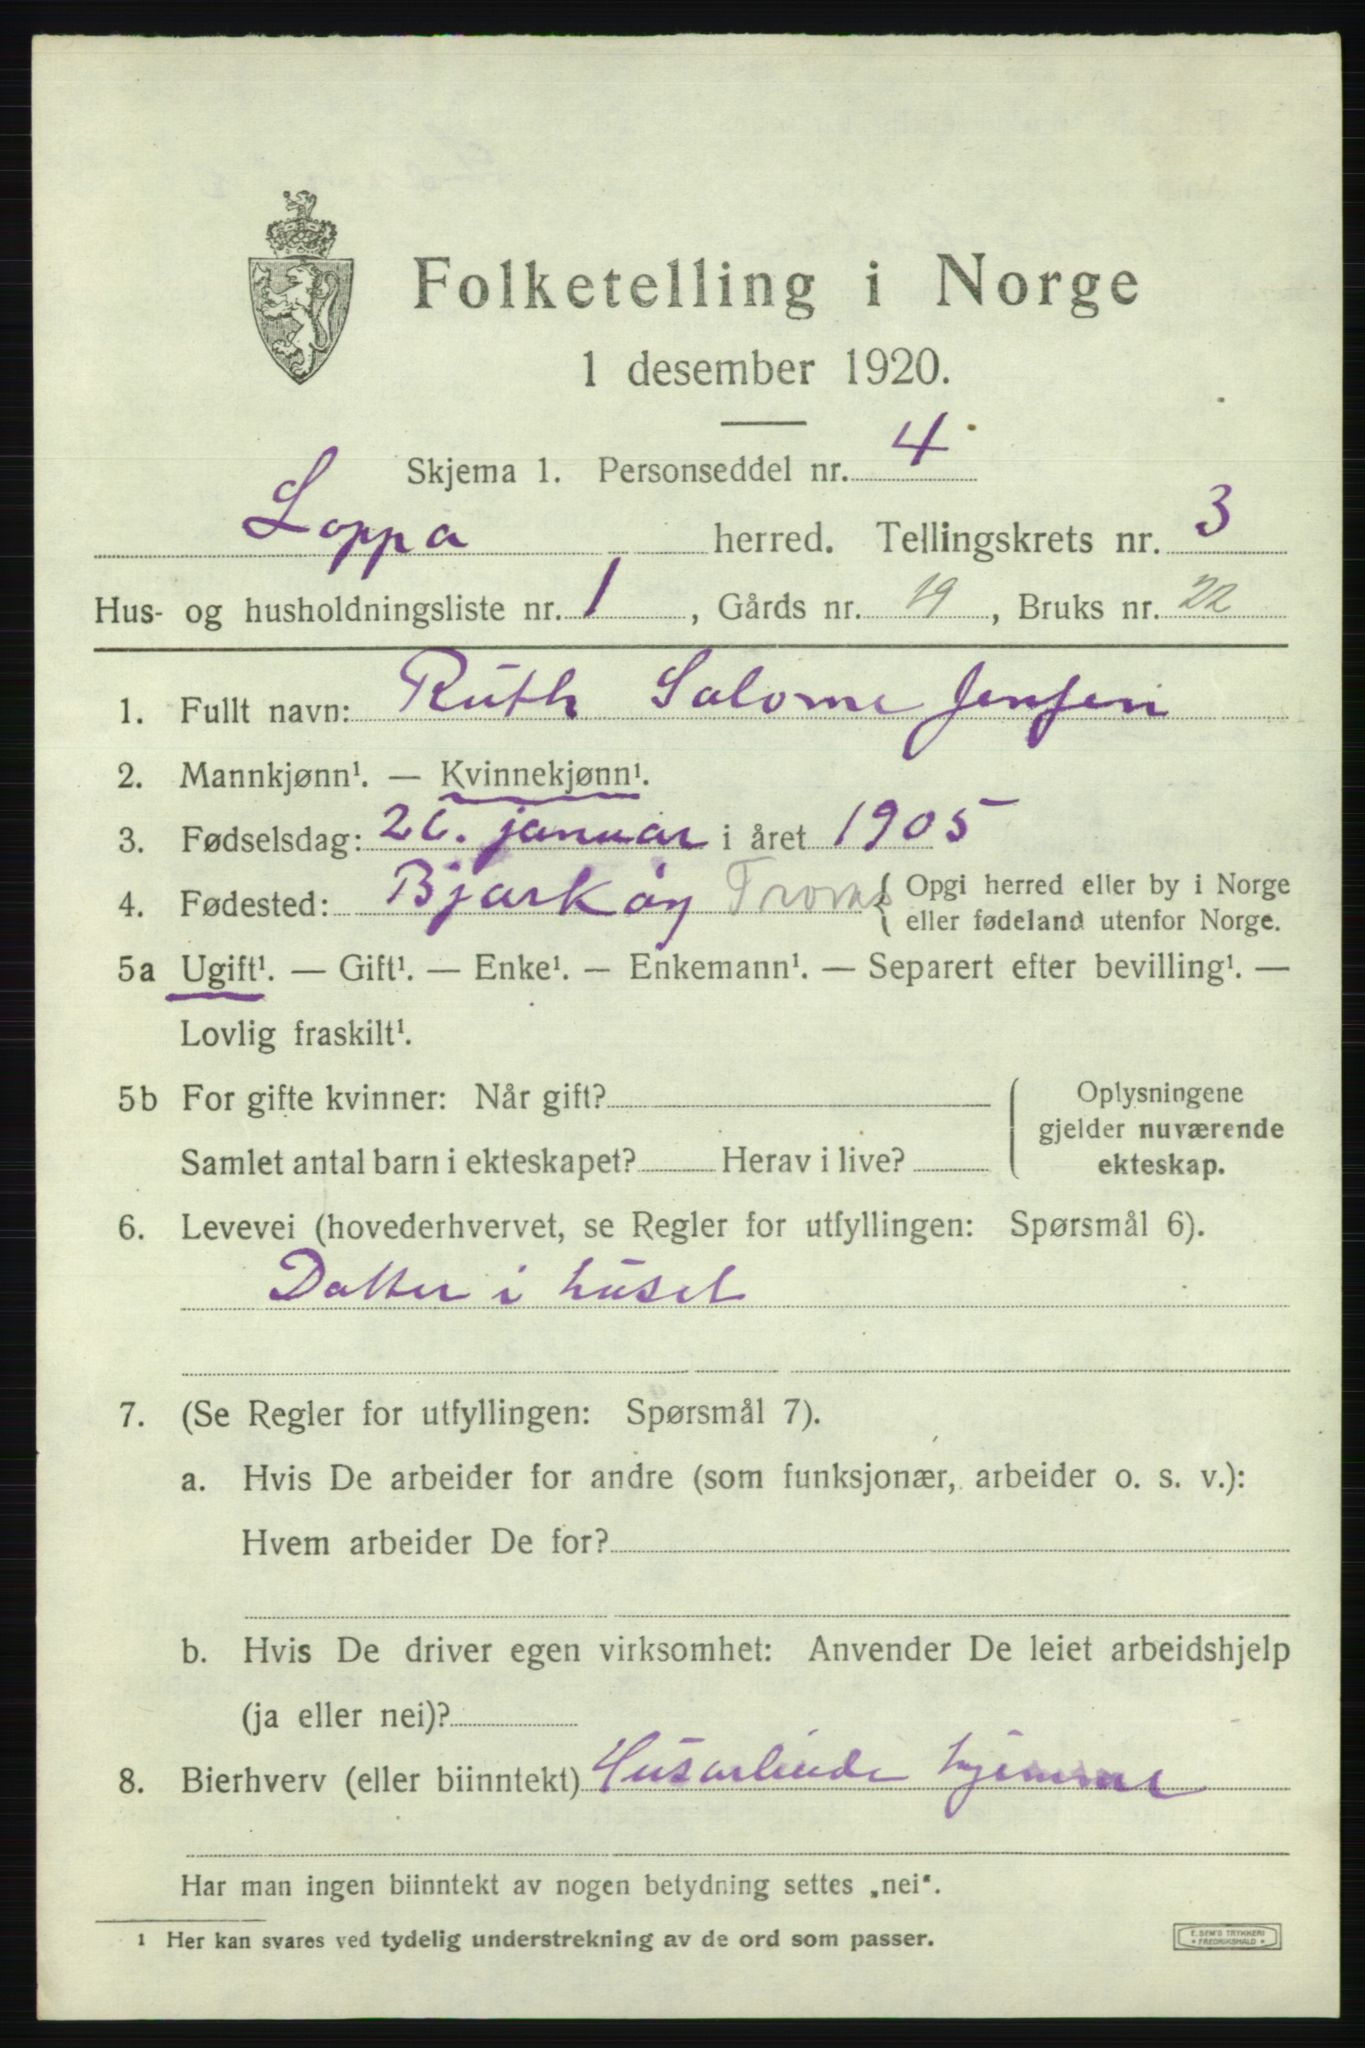 Folketelling i Norge
1 desember 1920.
Skjema 1. Personseddel nr. 4
Loppa herred. Tellingskrets nr. 3
Hus- og husholdningsliste nr. 1, Gårds nr. 19, Bruks nr. 22
1. Fullt navn: Ruth Salome Jensen
2. Mannkjønn¹. — Kvinnekjønn¹.
3. Fødselsdag: 26. januar i året 1905
4. Fødested: Bjarkøy Troms { Opgi herred eller by i Norge
eller fødeland utenfor Norge.
5a Ugift¹. — Gift¹. — Enke¹. — Enkemann¹. — Separert efter bevilling¹. —
Lovlig fraskilt¹.
5b For gifte kvinner: Når gift? ( Oplysningene
gjelder nuværende
Samlet antal barn i ekteskapet? Herav i live? ekteskap.
6. Levevei (hovederhvervet, se Regler for utfyllingen: Spørsmål 6).
Datter i huset
7. (Se Regler for utfyllingen: Spørsmål 7).
a. Hvis De arbeider for andre (som funksjonær, arbeider o. s. v.):
Hvem arbeider De for?
b. Hvis De driver egen virksomhet: Anvender De leiet arbeidshjelp
(ja eller nei)?
8. Bierhverv (eller biinntekt) Husarbeide hjemme
Har man ingen biinntekt av nogen betydning settes „nei“.
1 Her kan svares ved tydelig understrekning av de ord som passer.
E. SEM'S TRYKKERI
* FREDRIKSHALD *